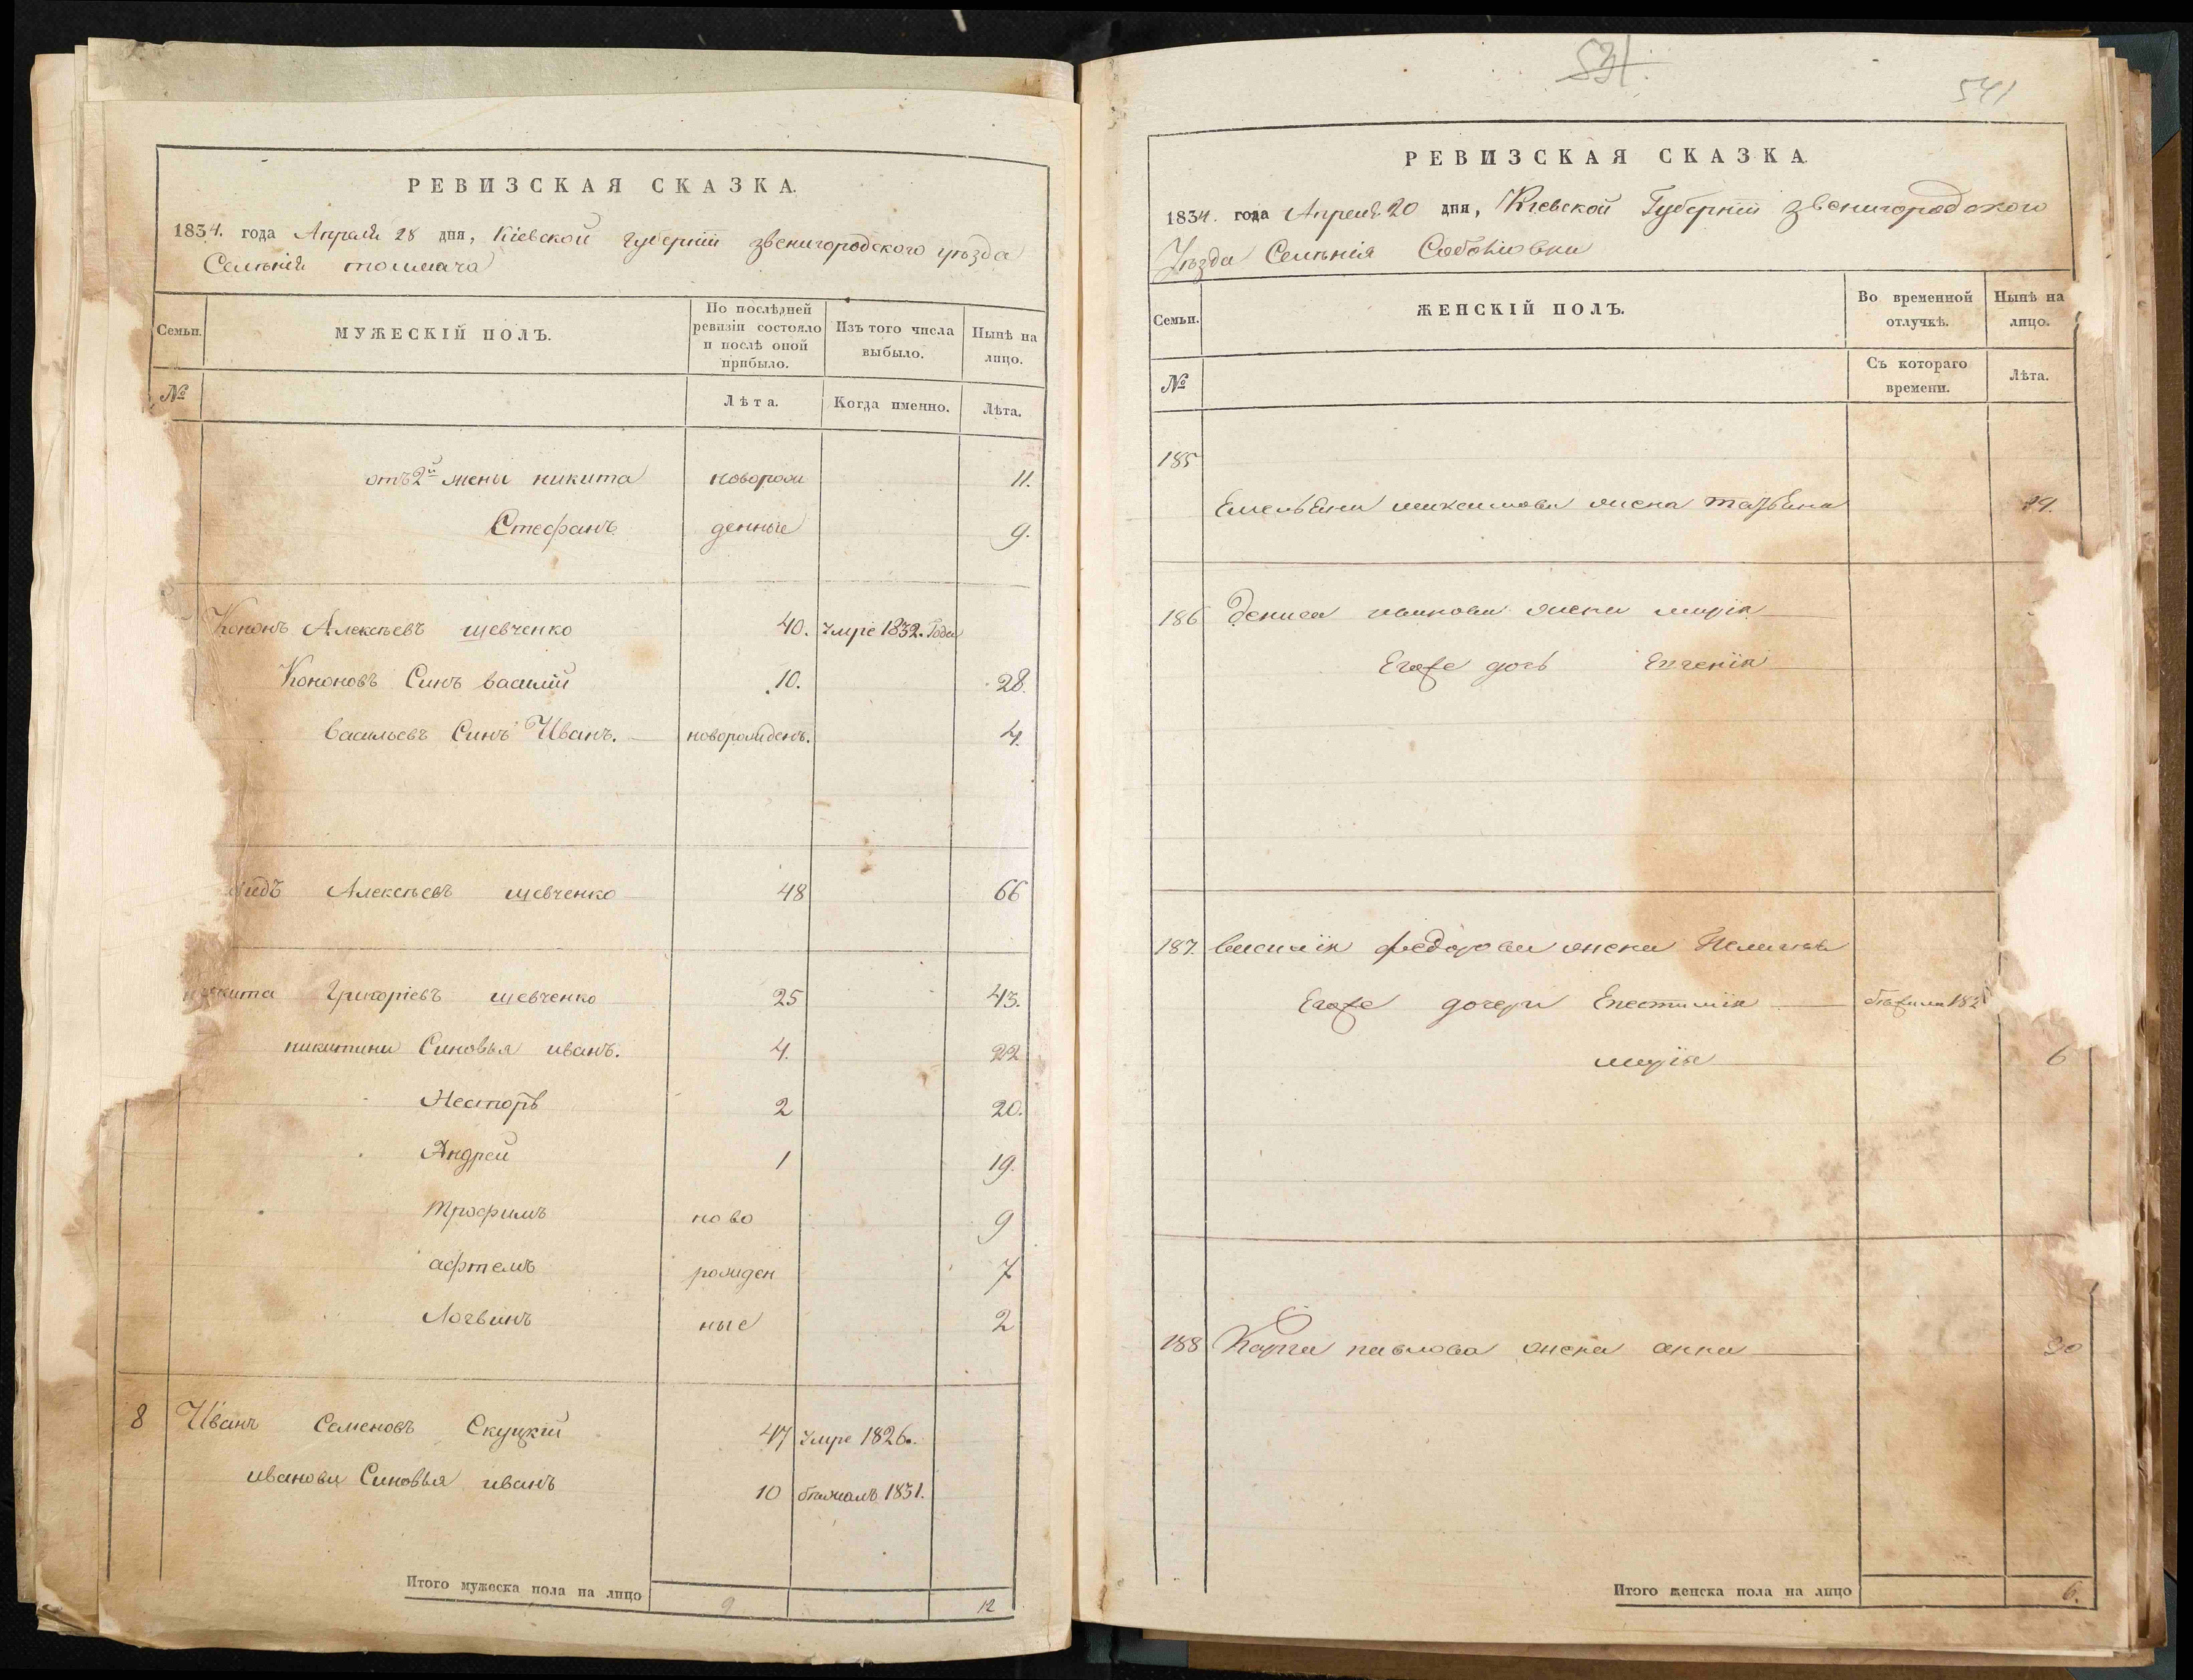 РЕВИЗСКАЯ СКАЗКА.
1834. года Апреля 28 дня, Кіевской губерніи звенигородского уѣзда
Селѣнія толмача
Семьи.
МУЖЕСКІЙ ПОЛЪ.
По послѣдней ревизіи состояло и послѣ оной прибыло.
Изъ того числа выбыло.
Нынѣ на лицо.
№
Лѣта.
Когда именно.
Лѣта.
отъ 2й жены никита новорож 11.
Стефанъ денные 9.
Кононъ Алексѣевъ шевченко 40. Умре 1832. Года
Кононовъ Синъ василій 10. 28.
васильевъ Синъ Иванъ. новорожденъ. 4.
Алексѣевъ шевченко 48 66
Григоріевъ шевченко 25 43.
никитини Синовья иванъ. 4. 22
Несторъ 2 20.
Андрей 1 19.
трофимъ ново 9
афтемъ рожден 7
Логвинъ ные 2
8 Иванъ Семеновъ Скуцкій 47 Умре 1826.
иванови Синовья иванъ 10 бѣжалъ 1831.
Итого мужеска пола на лицо 9 12
531.
541
РЕВИЗСКАЯ СКАЗКА
1834. года Апреля 20 дня, Кіевской Губерніи звенигородского
Уѣзда Селѣнія
Семьи.
ЖЕНСКІЙ ПОЛЪ.
Во временной отлучкѣ.
Нынѣ на лицо.
№
Съ котораго времени.
Лѣта.
185
жена
186 дениса иванова жена марія
Егоже дочь
187. василія федорова жена
Егоже дочери
марія 6
188 павлова жена анна
Итого женска пола на лицо 6.